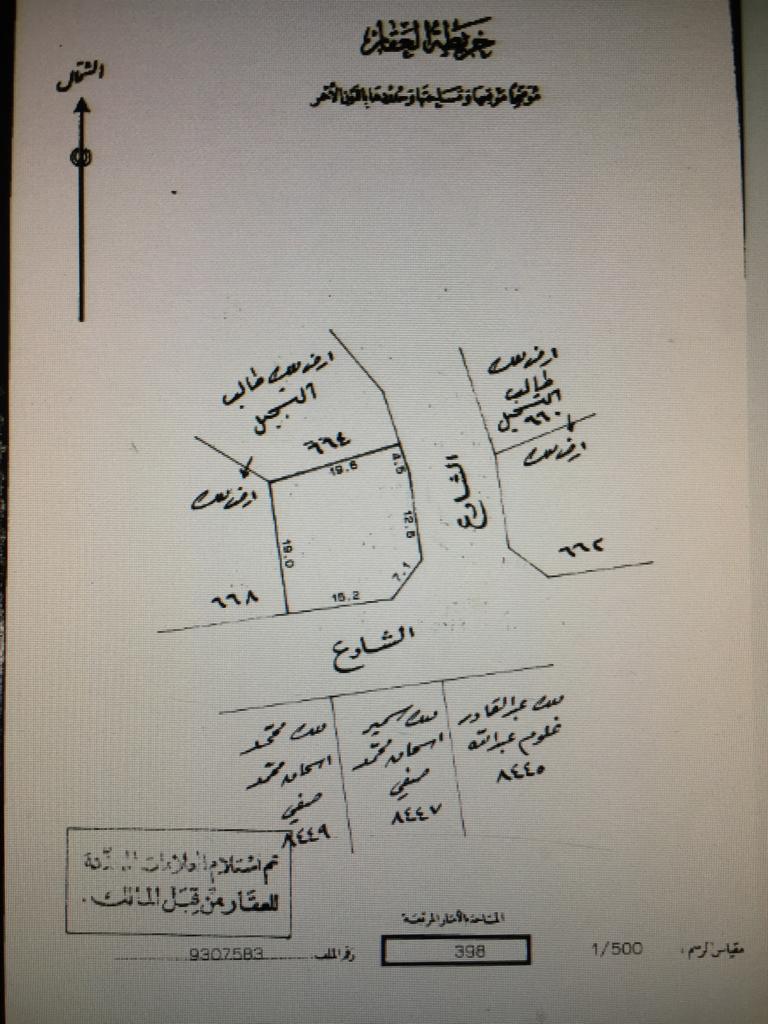 خريطة العقار
الشمال
ارض ملك طالب
السجل
٦٦٤
ارض ملك
طالب
السجل
٦٦٠
ارض ملك
ارض ملك
19.6
4.5
الشارع
12.5
19.0
٦٦٢
7.1
٦٦٨
15.2
الشارع
ملك عبدالقادر
غلوم عبدالله
٨٤٤٥
ملك سمير
اسحاق محمد
صفي
٨٤٤٧
ملك محمد
اسحاق محمد
صفي
٨٤٤٩
تم استلام العلامات المبينة
للعقار من قبل المالك .
المساحة بالأمتار المربعة
مقياس الرسم : 1/500
398
رقم الملف 9307583